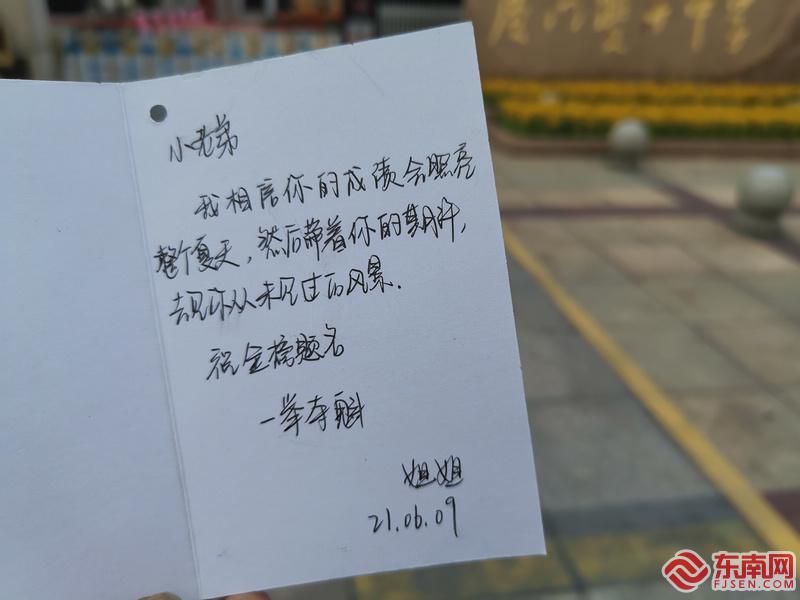 厦门双十中学
小老弟
我相信你的成绩会照亮
整个夏天,然后带着你的期许,
去见你从未见过的风景.
祝金榜题名
一举夺魁
姐姐
21.06.09
东南网
FJSEN.COM